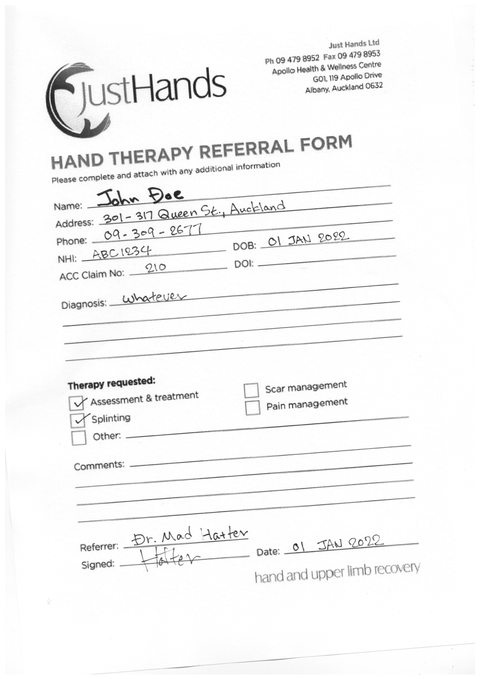 Just Hands Ltd
Ph 09 479 8952 Fax 09 479 8953
Apollo Health & Wellness Centre
G01, 119 Apollo Drive
Albany, Auckland 0632
JustHands
HAND THERAPY REFERRAL FORM
Please complete and attach with any additional information
Name: John Doe
Address: 301-317 Queen St., Auckland
Phone: 09-309-2677
NHI: ABC1234 DOB: 01 JAN 2022
ACC Claim No: 210 DOI:
Diagnosis: Whatever
Therapy requested:
Assessment & treatment Scar management
Splinting Pain management
Other:
Comments:
Referrer: Dr. Mad Hatter
Signed: Hatter Date: 01 JAN 2022
hand and upper limb recovery